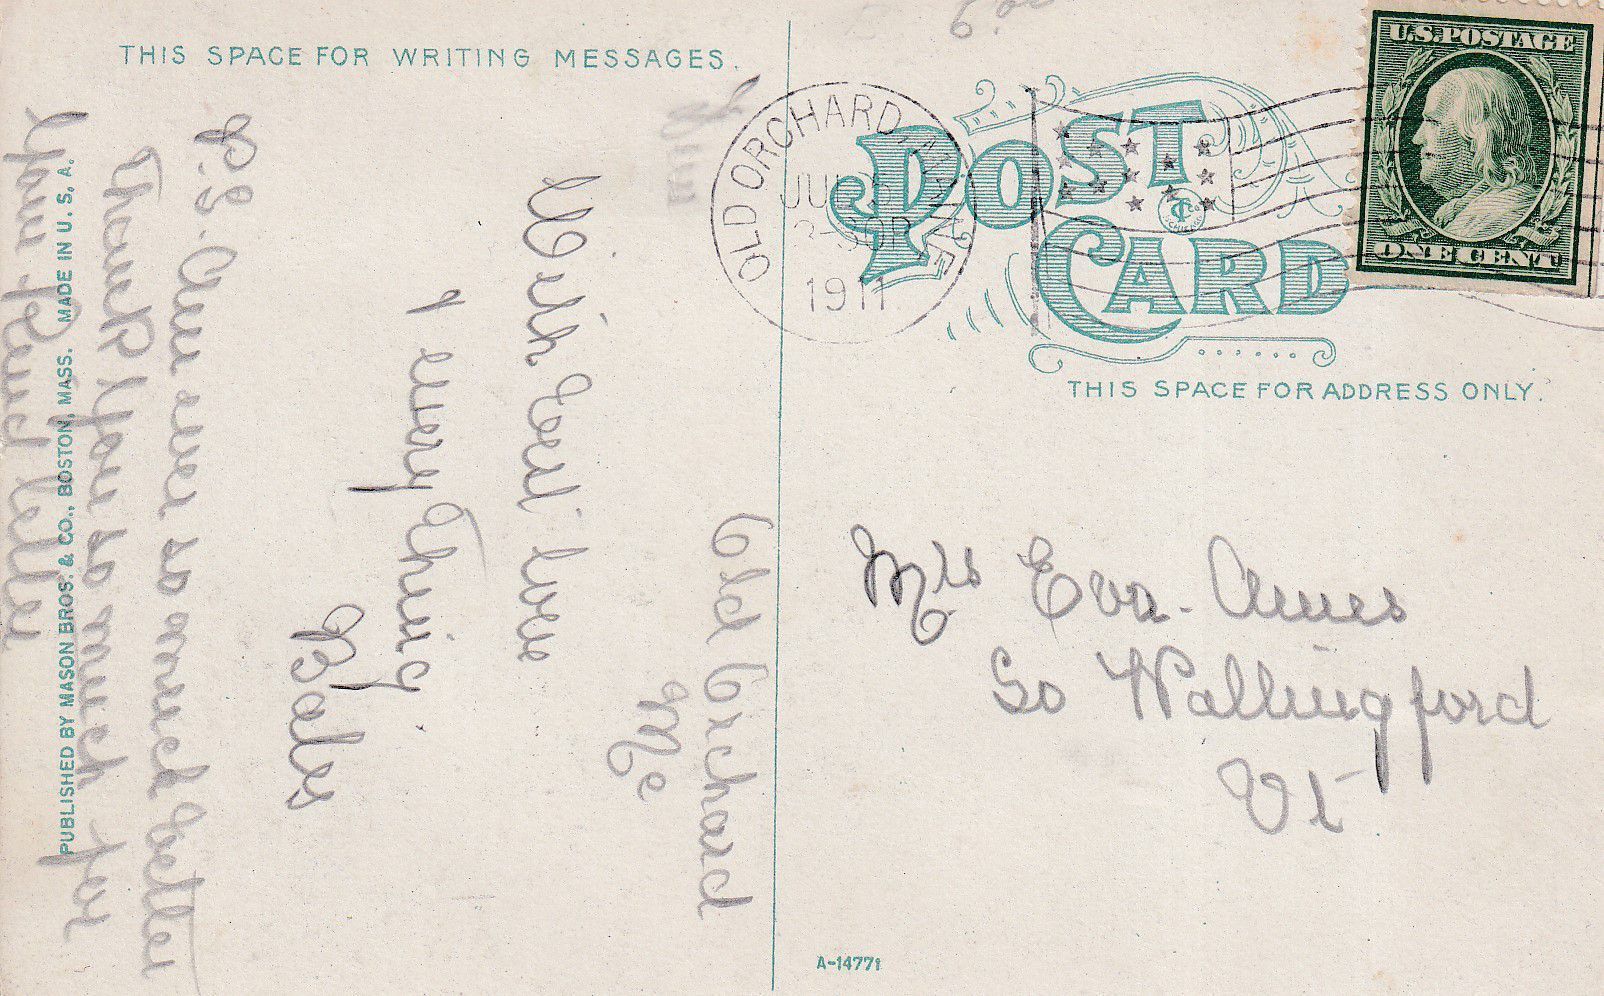 THIS SPACE FOR WRITING MESSAGES.
Old Orchard
Me
With love
& every thing.
P.S. Am ever so much better
Thank you so much for
your kind letter
PUBLISHED BY MASON BROS. & CO., BOSTON, MASS. MADE IN U.S.A.
OLD ORCHARD MAINE
JUL 5
1911
POST CARD
U.S.POSTAGE
ONE CENT
THIS SPACE FOR ADDRESS ONLY.
Mrs Eva Ames
So Wallingford
Vt
A-14771